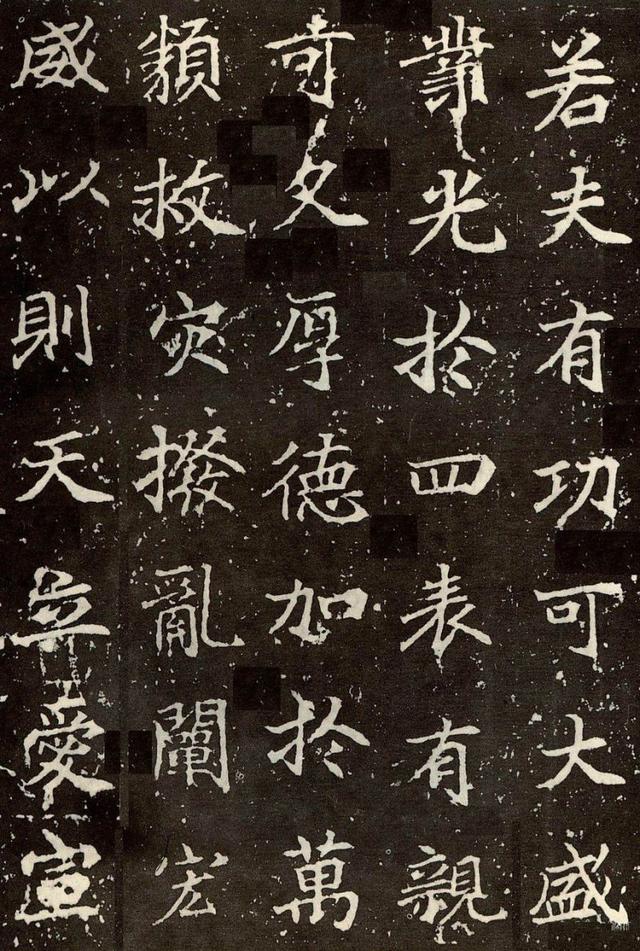 若夫有功可大盛
業光於四表有親
可久厚德加於萬
類救灾撥亂闡宏
威以則天立愛宣